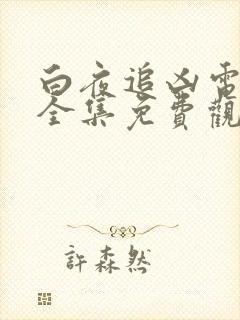 白夜追凶電
全集免費觀
許森然